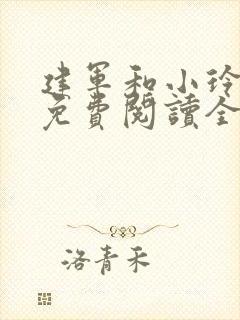 建军和小玲
免費閱讀全
洛青禾